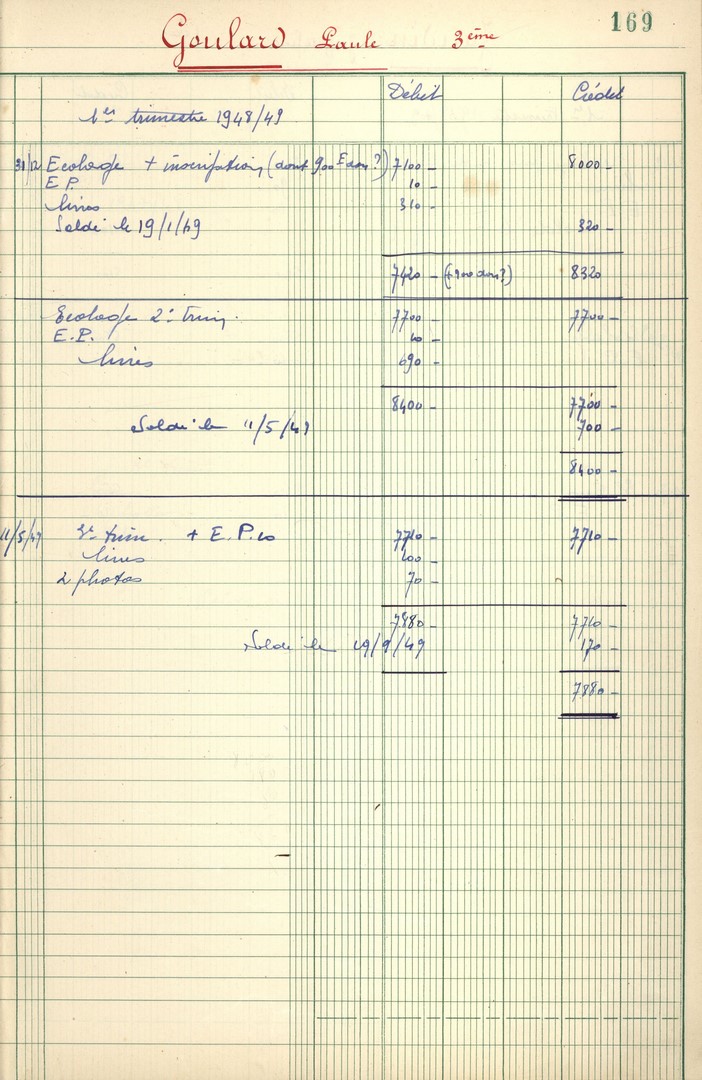 169
Goulard Paule 3ème
Débit Crédit
1er trimestre 1948/49
31/12 Ecolage + inscription (dont 900 F don ?) 7100 - 8000 -
E P. 10 -
livres 310 -
Soldé le 19/1/49 320 -
7420 - (+900 don ?) 8320
Ecolage 2e trim. 7700 - 7700 -
E.P. 10 -
livres 690 -
8400 - 7700 -
Soldé le 11/5/49 700 -
8400 -
11/5/49 3e trim. + E.P. 10 7710 - 7710 -
livres 100 -
2 photos 70 -
7880 - 7710 -
Soldé le 19/9/49 170 -
7880 -